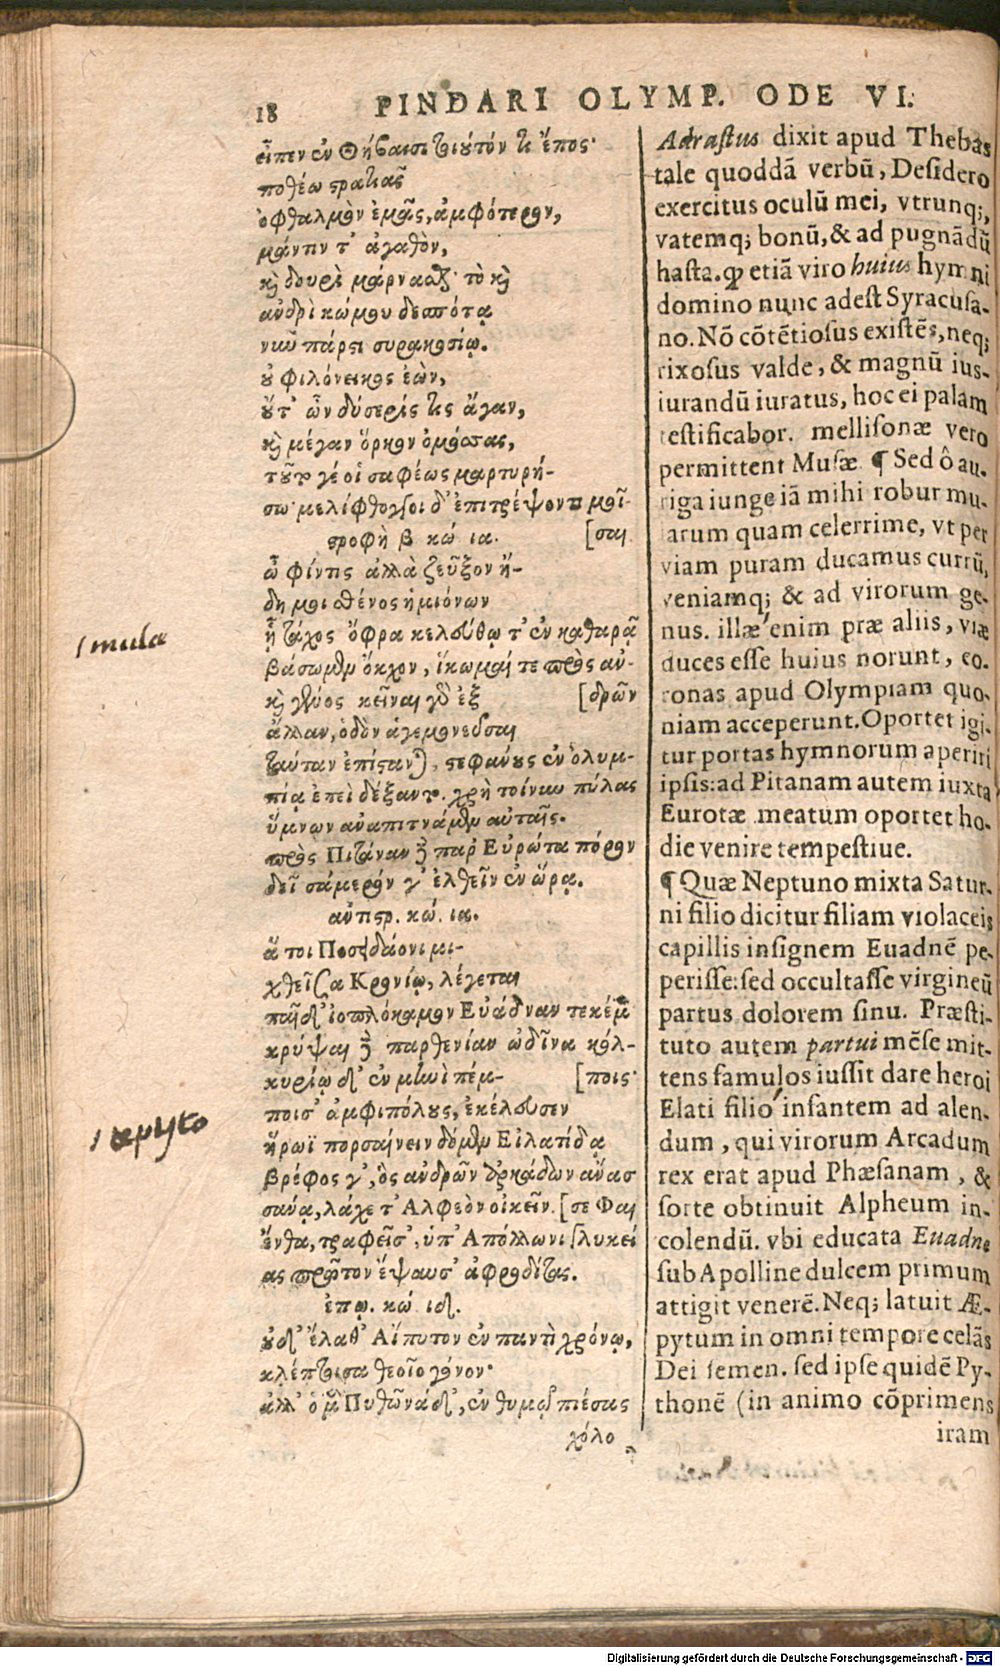 18 PINDARI OLYMP. ODE VI.
εἶπεν ἐν Θήβαισι τοιοῦτόν τι ἔπος·
ποθέω στρατιᾶς
ὀφθαλμὸν ἐμᾶς, ἀμφότερον,
μάντιν τ' ἀγαθὸν,
καὶ δουρὶ μάρνασθαι· τὸ καὶ
ἀνδρὶ κώμου δεσπότᾳ
νιῦ πάρεστι συρακοσίῳ.
οὐ φιλόνεικος ἐὼν,
οὔτ' ὢν δύσερίς τις ἄγαν,
καὶ μέγαν ὅρκον ὀμόσσας,
τοῦτό γέ οἱ σαφέως μαρτυρή-
σω· μελίφθογγοι δ' ἐπιτρέψοντι μοῖ-
στροφὴ β κώ. ια. [σαι
ὦ φίντις ἀλλὰ ζεῦξον ἤ-
δη μοι σθένος ἡμιόνων
ᾗ τάχος ὄφρα κελεύθῳ τ' ἐν καθαρᾷ
βάσωμεν ὄκχον, ἵκωμαί τε πρὸς ἀν-
καὶ γένος κεῖναι γὰρ ἐξ [δρῶν
ἄλλαν, ὁδὸν ἁγεμονεῦσαι
ταύταν ἐπίστανται, στεφάνους ἐν ὀλυμ-
πίᾳ ἐπεὶ δέξαντο. χρὴ τοίνυν πύλας
ὕμνων ἀναπιτνάμεν αὐταῖς.
πρὸς Πιτάναν δὲ παρ' Εὐρώτα πόρον
δεῖ σάμερόν γ' ἐλθεῖν ἐν ὥρᾳ.
ἀντιστρ. κώ. ια.
ἅ τοι Ποσειδάονι μι-
χθεῖσα Κρονίῳ, λέγεται
παῖδ' ἰοπλόκαμον Εὐάδναν τεκέμεν
κρύψαι δὲ παρθενίαν ὠδῖνα κόλ-
κυρίῳ δ' ἐν μηνὶ πέμ- [ποις·
ποισ' ἀμφιπόλους, ἐκέλευσεν
ἥρωϊ πορσαίνειν δόμεν Εἰλατίδᾳ
βρέφος γ', ὃς ἀνδρῶν ἀρκάδων ἄνασ
σάνᾳ, λάχε τ' Αλφεὸν οἰκεῖν. [σε Φαι
ἔνθα, τραφεῖσ', ὑπ' Απόλλωνι γλυκεί
ας πρῶτον ἔψαυσ' ἀφροδίτας.
ἐπῳ. κώ. ιδ.
οὐδ' ἔλαθ' Αἴπυτον ἐν παντὶ χρόνῳ,
κλέπτοισα θεοῖο γόνον·
ἀλλ' ὁ μὲν Πυθῶνάδ', ἐν θυμῷ πιέσας
χόλο
Adrastus dixit apud Thebas
tale quoddā verbū, Desidero
exercitus oculū mei, vtrunq;,
vatemq; bonū, & ad pugnādū
hasta. qđ etiā viro huius hymni
domino nunc adest Syracusa-
no. Nō cōtētiosus existēs, neq;
rixosus valde, & magnū ius-
iurandū iuratus, hoc ei palam
testificabor. mellisonæ vero
permittent Musæ ¶ Sed ô au-
riga iunge iā mihi robur mu-
larum quam celerrime, vt per
viam puram ducamus currū,
veniamq; & ad virorum ge-
nus. illæ enim præ aliis, viæ
duces esse huius norunt, co-
ronas apud Olympiam quo-
niam acceperunt. Oportet igi-
tur portas hymnorum aperiri
ipsis: ad Pitanam autem iuxta
Eurotæ meatum oportet ho-
die venire tempestiue.
¶ Quæ Neptuno mixta Satur-
ni filio dicitur filiam violaceis
capillis insignem Euadnē pe-
perisse: sed occultasse virgineū
partus dolorem sinu. Præsti-
tuto autem partui mēse mit-
tens famulos iussit dare heroi
Elati filio infantem ad alen-
dum, qui virorum Arcadum
rex erat apud Phæsanam, &
sorte obtinuit Alpheum in-
colendū. vbi educata Euadne
sub Apolline dulcem primum
attigit venerē. Neq; latuit Æ-
pytum in omni tempore celās
Dei semen. sed ipse quidē Py-
thonē (in animo cōprimens
iram
/ mula
/ æpyto
Digitalisierung gefördert durch die Deutsche Forschungsgemeinschaft - DFG